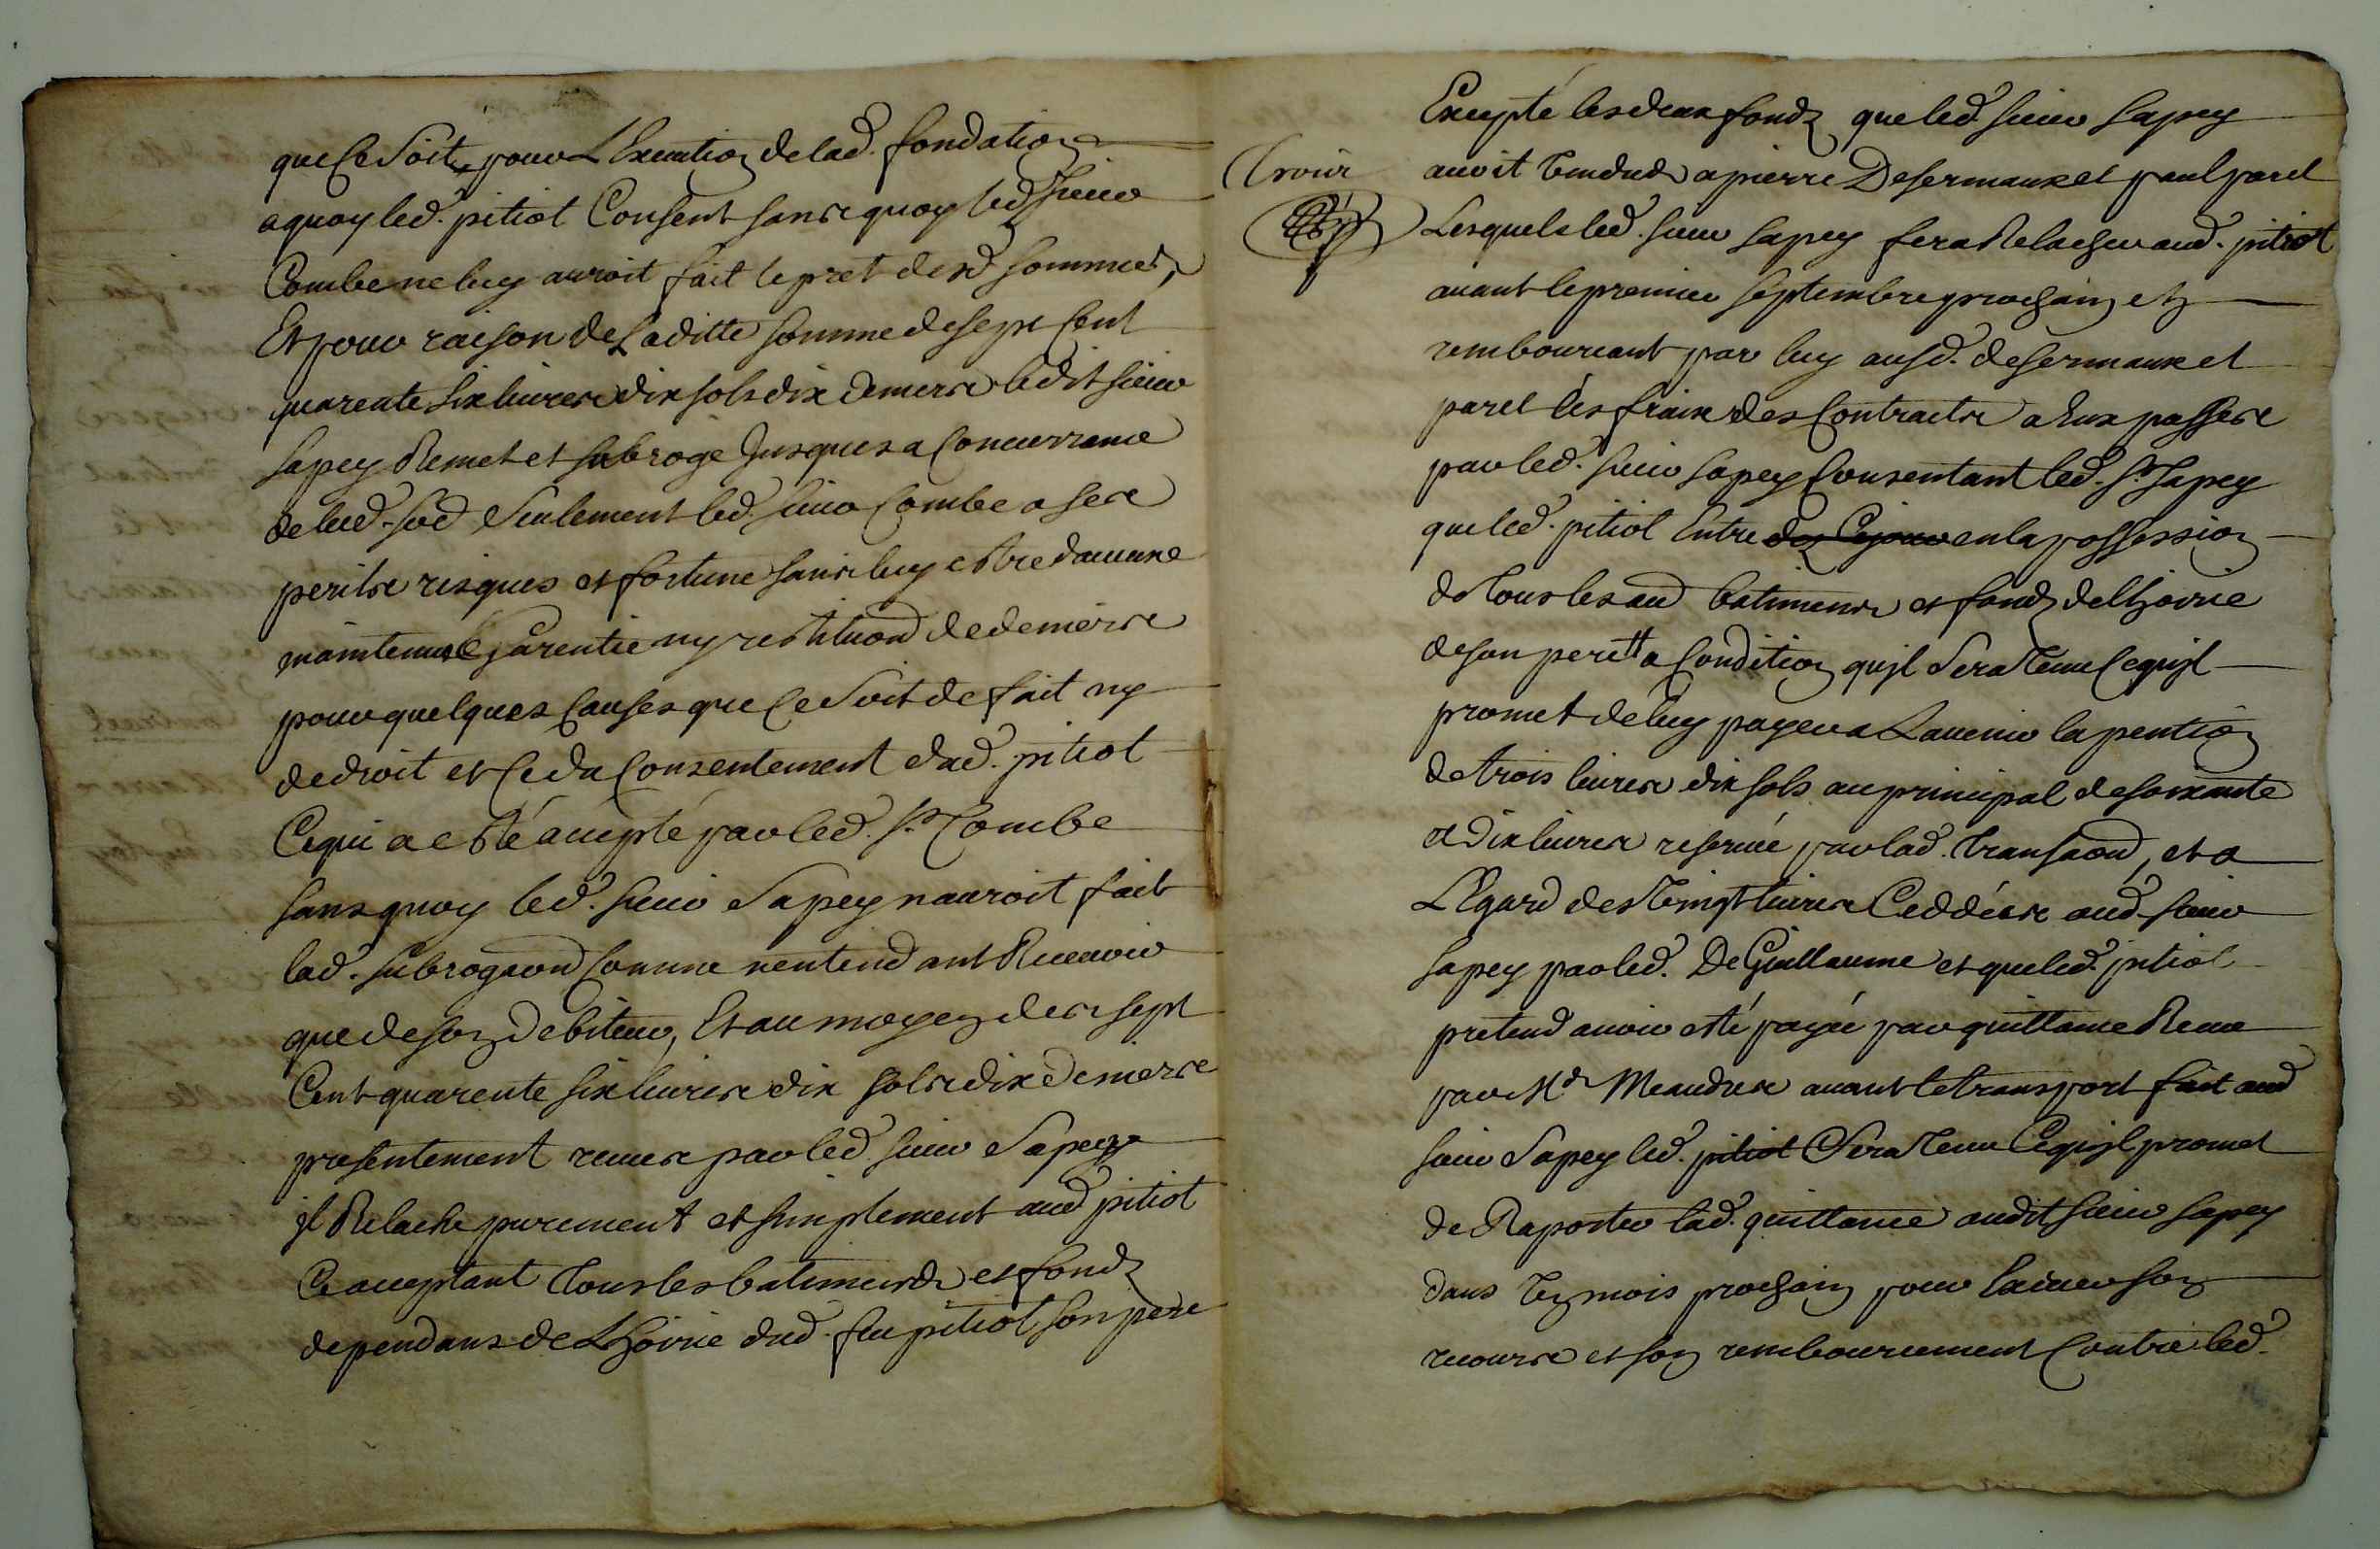 que Ce Soit pour LExecution de lad. fondation
a quoy led. pitiot Consent sans quoy led sieur
Combe ne luy auroit fait le pret desd sommes,
Et pour raison de Laditte somme de sept Cent
quarente six livres dix sols dix deniers ledit sieur
sapey Remet et subroge Jusques a Concurrance
de lad. so&#773;e Seulement led. sieur Combe a ses
perils risques et fortune sans luy estre daucune
maintenue Garentie ny restituon&#773; de deniers
pour quelques Causes que Ce Soit de fait ny
de droit et Ce du Consentement dud. pitiot
Ce qui a esté accepté par led. Sr Combe
sans quoy led. sieur Sapey nauroit fait
lad. subrogaon&#773; Comme nentendant Recevoir
que de son Debiteur, Et au moyen des sept
Cent quarente six livres dix sols dix deniers
presentement receus par led. sieur Sapey
jl Relache purement et simplement aud pitiot
Ce acceptant Tous les batiments et fondz
dependans de Lhoirie dud. feu pitiot son pere
Excepté les deux fondz que led. sieur Sapey
avoit Vendus a pierre Desermaux et paul paret
Lesquels led. sieur sapey fera Relacher aud. pitiot
avant le premier septembre prochain et
remboursant par luy ausd. desermaux et
paret les fraix des Contracts a Eux passes
par led. sieur sapey Consentant led. Sr. Sapey
que led. pitiot Entre dez Ce jour en la possession
de Tous lesd batiments et fondz de lhoirie
de son pere # a Condition qujl Sera Tenu Ce qujl
promet de luy payer a Lavenir la pention
de trois livres dix sols au principal de soixante
et dix livres reservée par lad. transaon&#773;, et a
LEgard des Vingt livres Ceddées aud. sieur
sapey par led. De Guillaume et que led. pitiot
pretend avoir esté payée par quittance Receue
par Me Meandre avant le transport fait aud
sieur Sapey led. pitiot Sera Tenu Ce qujl promet
de Raporter lad. quittance audit sieur sapey
dans Un mois prochain pour laisser son
recours et son remboursement Contre led.